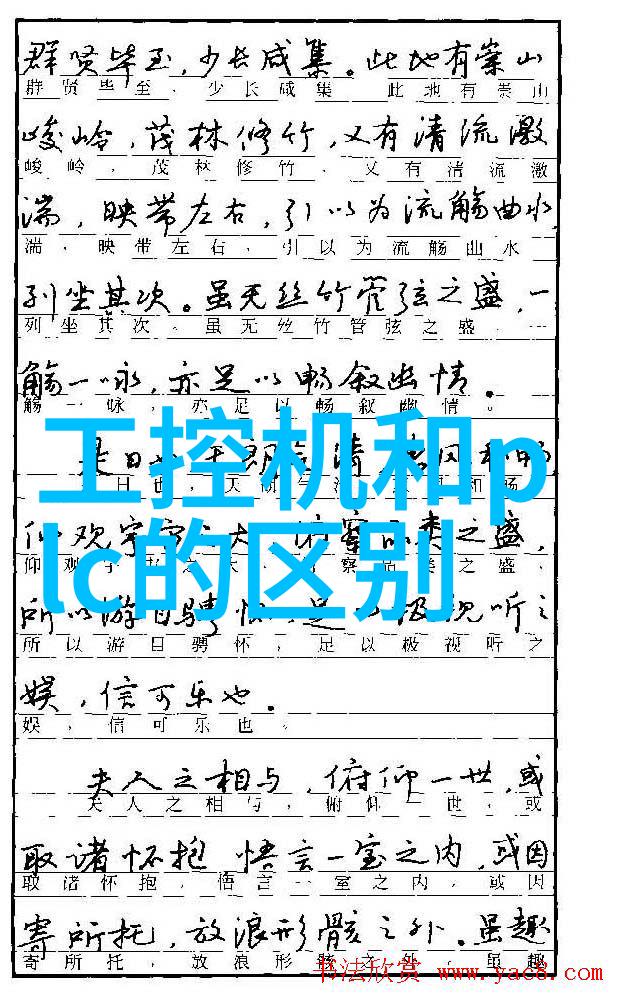 群贤毕至,少长咸集。此地有崇山
群贤毕至、少长咸集 此地有崇山
峻岭,茂林修竹,又有清流激
峻岭,茂林修竹、又有清流激
湍,映带左右,引以为流觞曲水,
湍,映带左右,引以为流觞曲水
列坐其次。虽无丝竹管弦之盛,一
列坐其次。虽无丝竹管弦之盛 一
觞一咏,亦足以畅叙幽情。
觞一咏,亦足以畅叙幽情。
工控机和p
lc的区别
是日
日也,天朗
仰观宇
之盛,
仰观
察品类之盛、
所以游目骋怀
足
视听之
所以游目骋怀,足以极视听之
娱,信可乐也。
娱,信可乐也。
夫人之相与,俯仰一世,或
夫人之相与,俯仰一世,或
取诸怀抱 悟言一室之内,或因
取诸怀抱,悟言一室之内,或因
寄所托,放浪形骸之外。虽趣
寄所托,放浪形骸之外。虽趣
书法欣赏 www.yac8.com